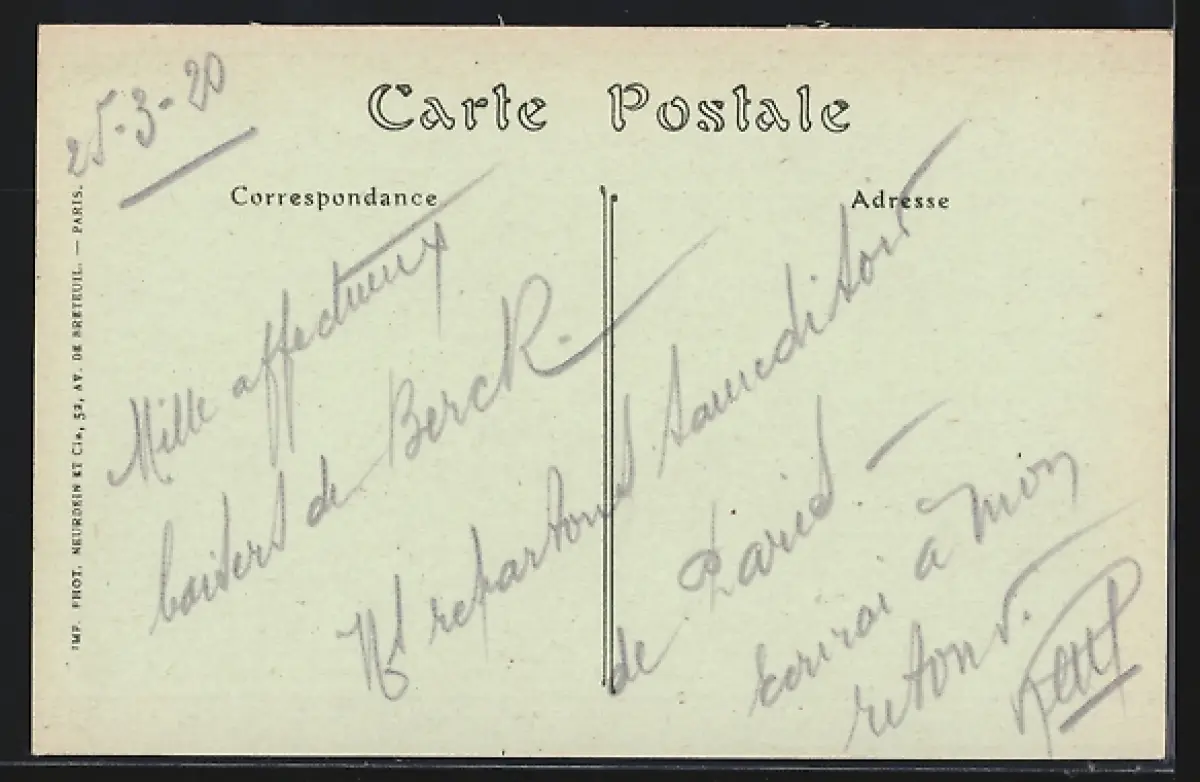 Carte Postale
Correspondance
Adresse
IMP. PHOT. NEURDEIN ET Cie, 52, AV. DE BRETEUIL. — PARIS.
25-3-20
Mille affectueux
baisers de Berck.
Ns repartons samedi soir
de Paris —
écrirai à mon
retour.